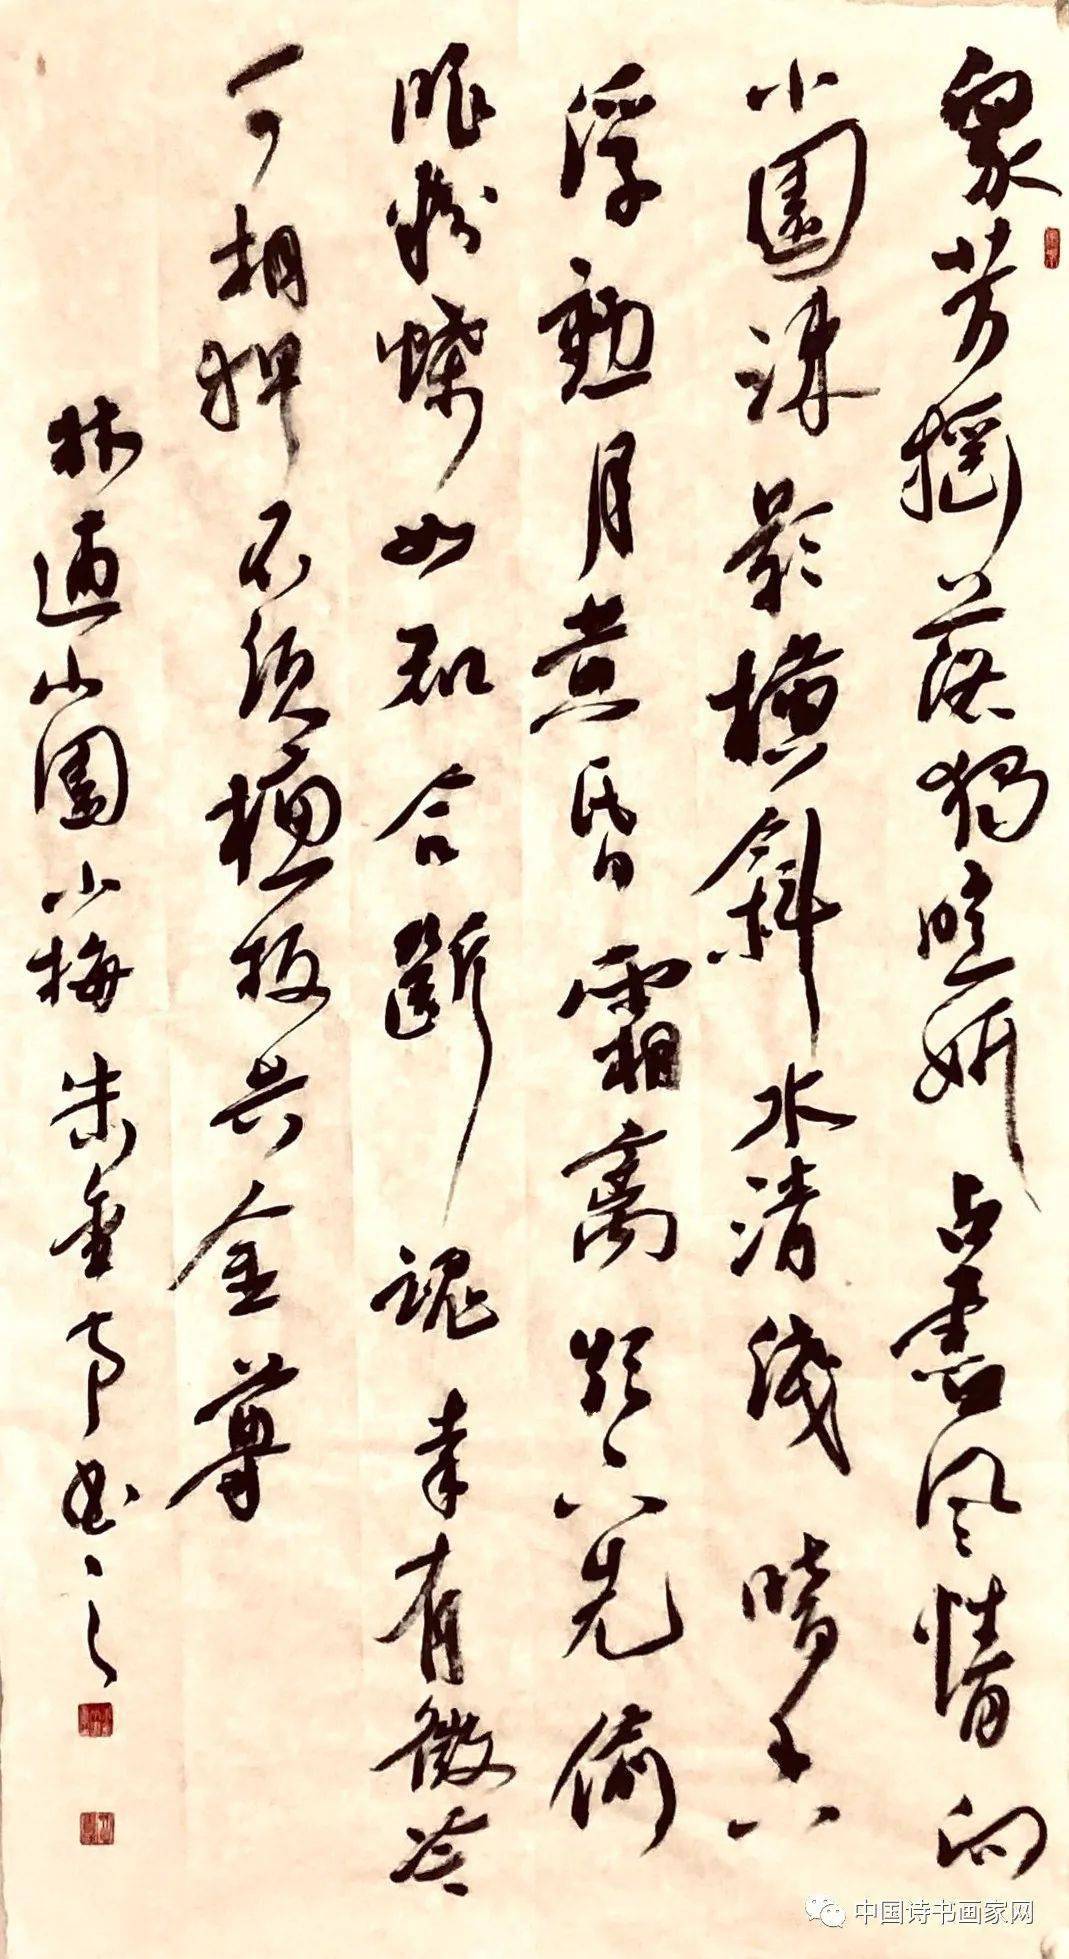 眾芳搖落獨暄妍占盡风情向
小園疎影橫斜水清淺暗香
浮動月黄昏霜禽欲下先偷
眼粉蝶如知合斷魂幸有微吟
可相狎不須檀板共金尊
林逋山園小梅朱书之
中国诗书画家网